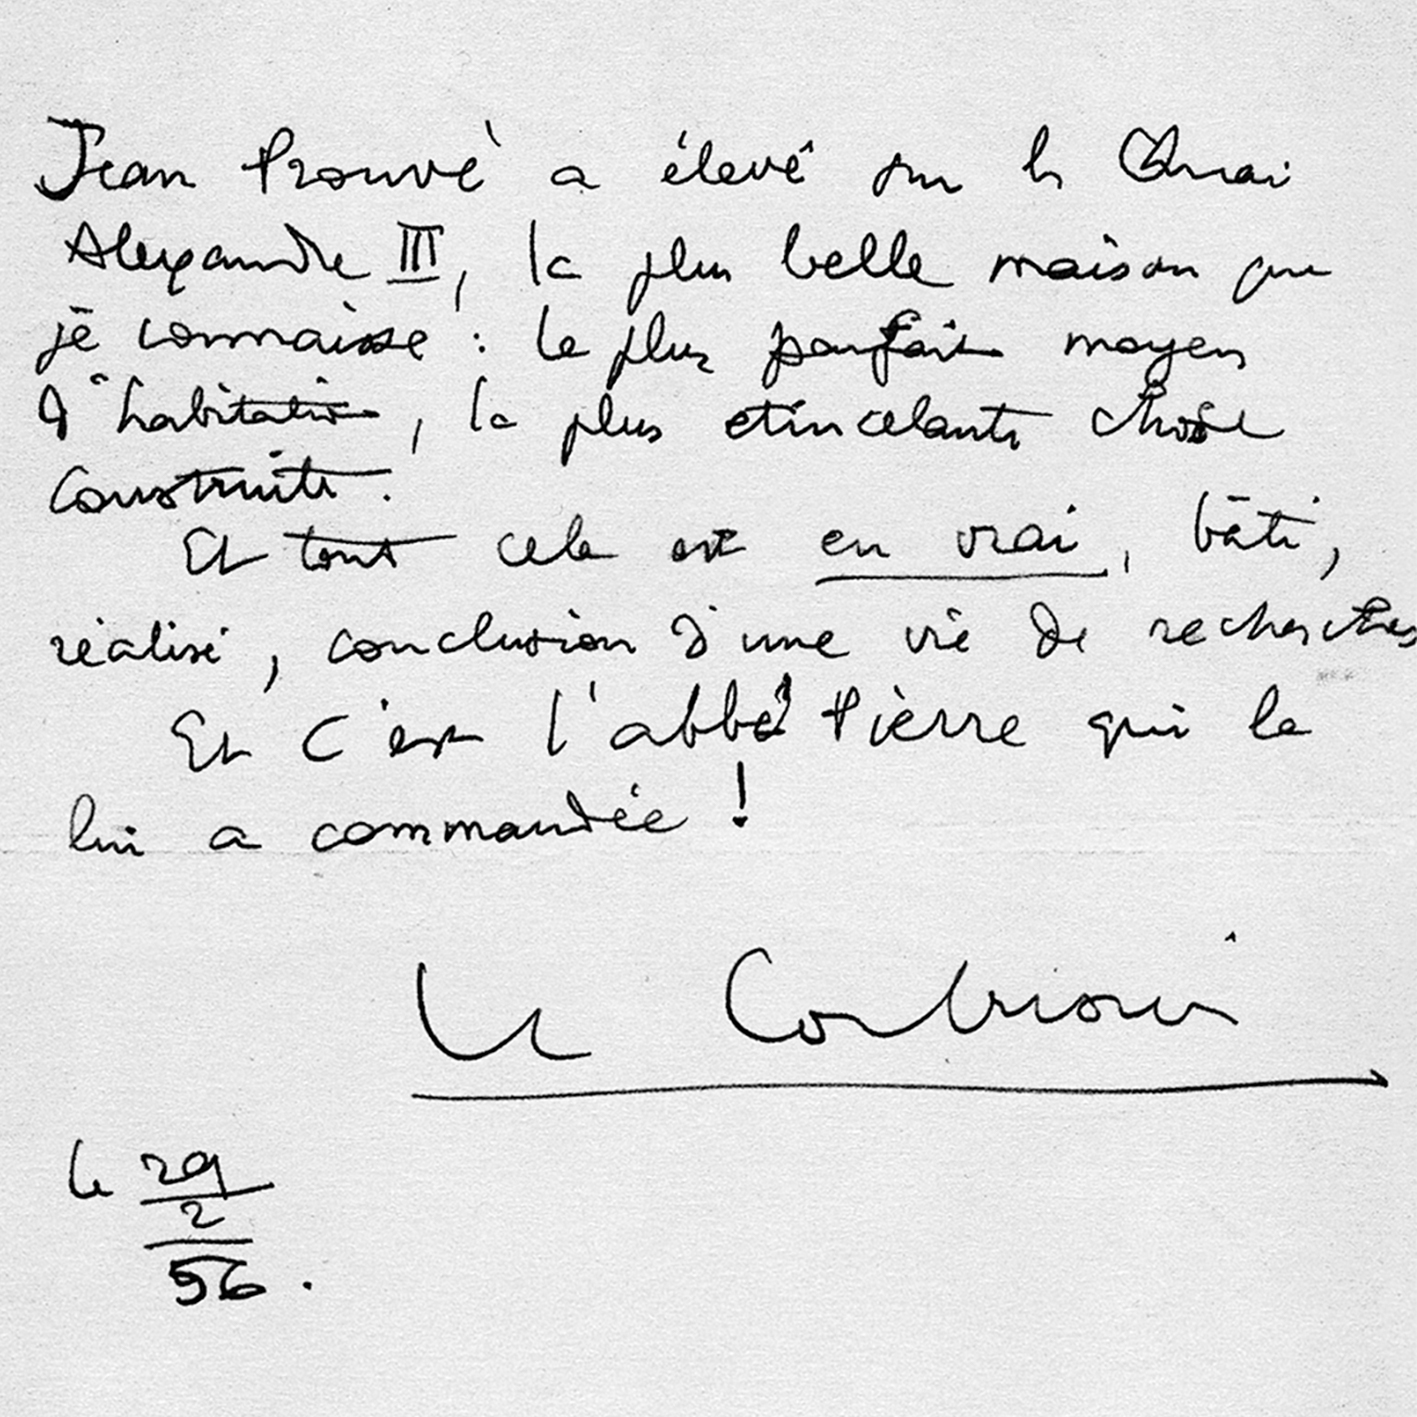 Jean Prouvé a élevé sur le Quai
Alexandre III, la plus belle maison que
je connaisse : le plus parfait moyen
d'habitation, la plus étincelante chose
construite.
Et tout cela est en vrai, bâti,
réalisé, conclusion d'une vie de recherches
Et c'est l'abbé Pierre qui la
lui a commandée !
Le Corbusier
le 29
2
56.